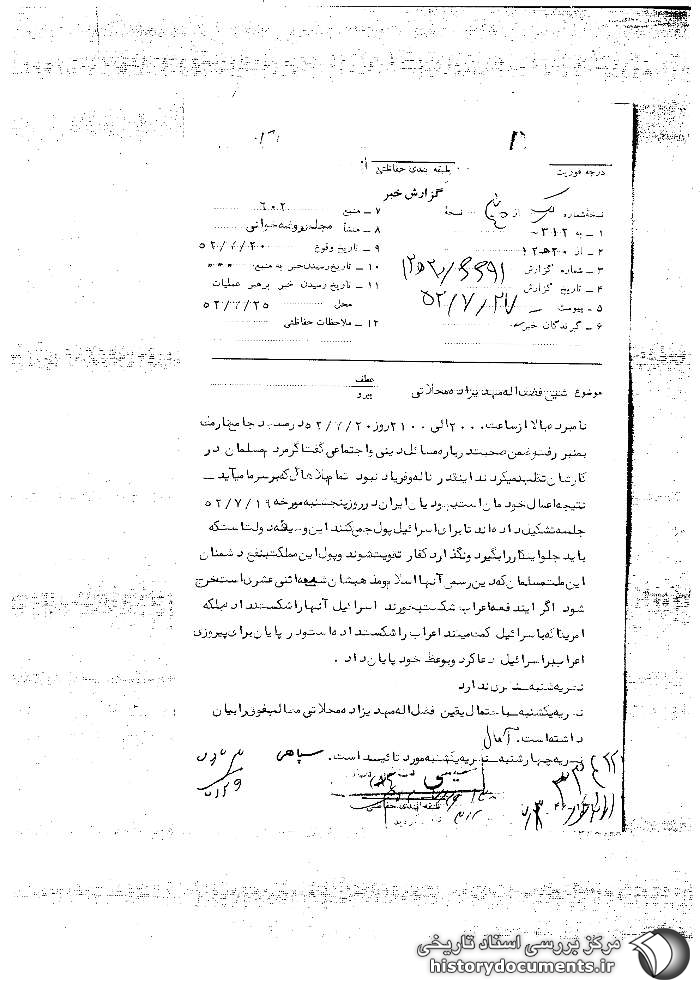 درجه فوریت
طبقه بندی حفاظتی
گزارش خبر
نسخه شماره یک از نسخه
۱ ـ به ۳۱۲
۲ ـ از ۲۰ه۱۲
۳ ـ شماره گزارش
۴ ـ تاریخ گزارش ۵۲/۷/۲۷
۵ ـ پیوست ـ
۶ ـ گیرندگان خبر
۷ ـ منبع ۶۰۲
۸ ـ منشأ مجلس روضه خوانی
۹ ـ تاریخ وقوع ۵۲/۷/۲۰
۱۰ ـ تاریخ رسیدن خبر به منبع
۱۱ ـ تاریخ رسیدن خبر برهبر عملیات
محل ۵۲/۷/۲۵
۱۲ ـ ملاحظات حفاظتی
موضوع شیخ فضل اله مهدیزاده محلاتی
عطف
پیرو
نامبرده بالا از ساعت ۲۰۰۰ الی ۲۱۰۰ روز ۵۲/۷/۲۰ در مسجد جامع نارمک
بمنبر رفت و ضمن صحبت درباره مسائل دینی و اجتماعی گفت اگر مردم مسلمان در
کارشان تقلب نمیکردند اینقدر ناله و فریاد نبود تمام بلاهائی که بر سر ما میآید ـ
نتیجه اعمال خودمان است یهودیان ایران در روز پنجشنبه مورخه ۵۲/۷/۱۹
جلسه تشکیل داده اند تا برای اسرائیل پول جمع کنند این وظیفه دولت است که
باید جلو اینکار را بگیرد و نگذارد کفار تقویت شوند و پول این مملکت بنفع دشمنان
این ملت مسلمان که دین رسمی آنها اسلام و مذهبشان شیعه اثنی عشری است خرج
شود اگر ایندفعه اعراب شکست بخورند اسرائیل آنها را شکست نداده بلکه
امریکا که باسرائیل کمک میکند اعراب را شکست داده است و در پایان برای پیروزی
اعراب بر اسرائیل دعا کرد و بوعظ خود پایان داد .
نظریه شنبه ـ نظری ندارد
نظریه یکشنبه ـ باحتمال یقین فضل اله مهدیزاده محلاتی مطالب فوق را بیان
داشته است. آمال
نظریه چهارشنبه ـ نظریه یکشنبه مورد تائید است. سپاهی
طبقه بندی حفاظتی
مرکز بررسی اسناد تاریخی
historydocuments.ir